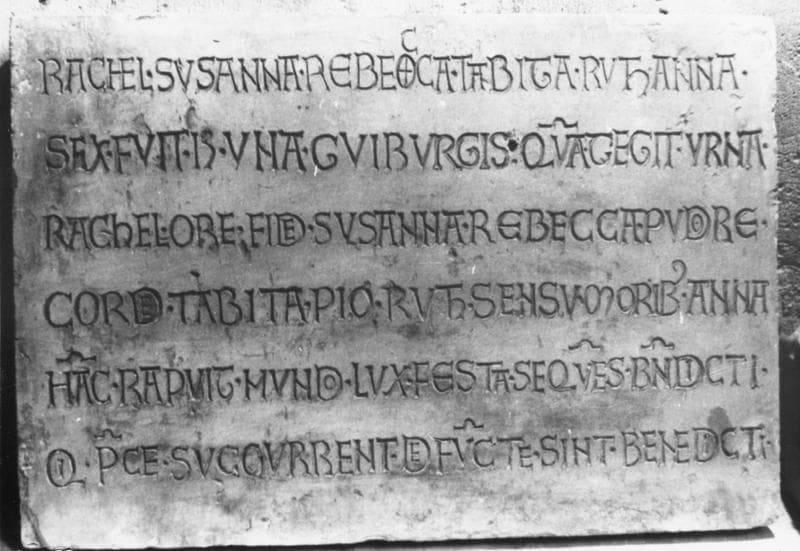 RACHEL·SVSANNA·REBECCA·TABITA·RVTH ANNA·
SEX·FVIT·H·VNA·GVIBVRGIS:QVA TEGIT·VRNA·
RACHEL·ORE·FIDE·SVSANNA·REBECCA·PVDORE·
CORDE·TABITA·PIO·RVTH·SENSV·MORIB'·ANNA
HAC·RAPVIT·MVNDO·LVX·FESTA·SEQVES·BNDICTI·
QI·PCE·SVCCVRRENT·DEFVCTE·SINT·BENEDICTI·